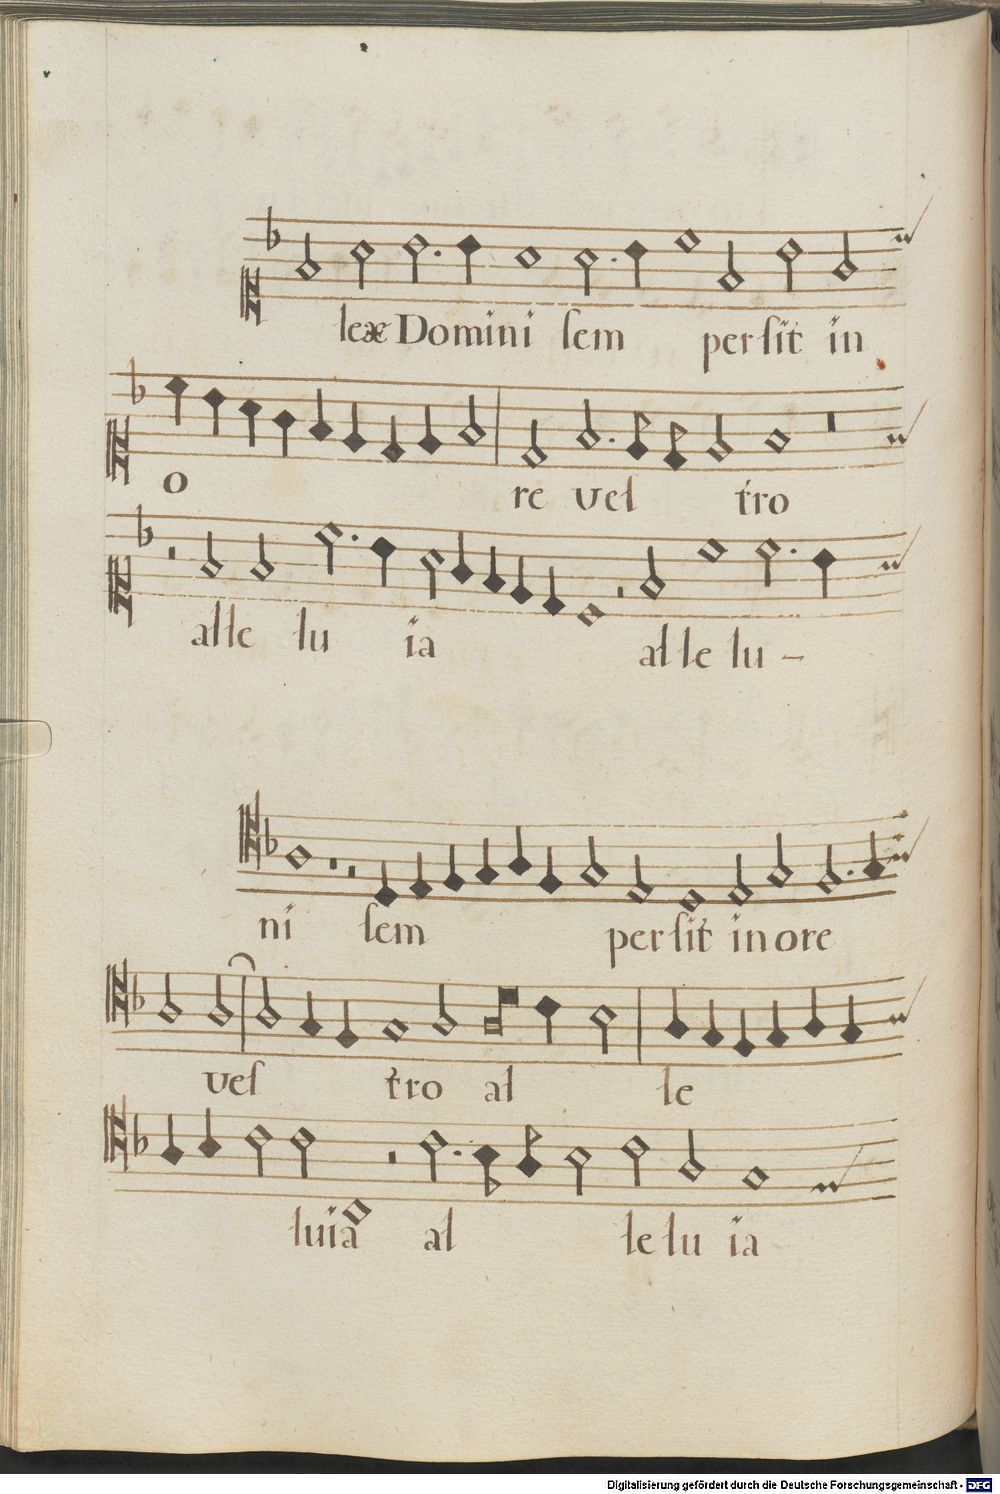 leæ Domini sem per sit in
o re ves tro
alle lu ia al le lu -
ni sem per sit in ore
ves tro al le
luia al le lu ia
Digitalisierung gefördert durch die Deutsche Forschungsgemeinschaft - DFG